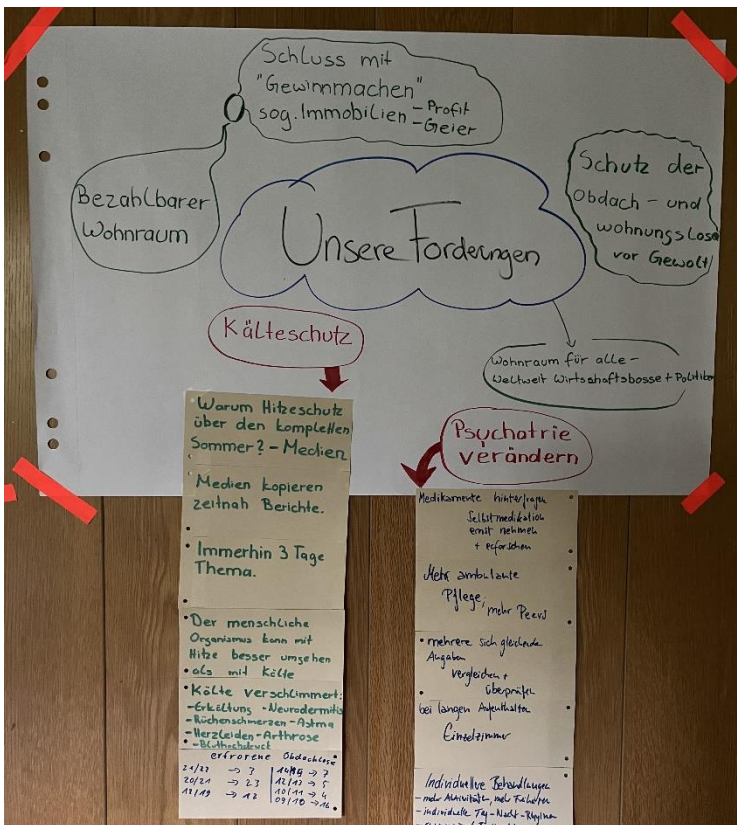 Schluss mit
"Gewinnmachen"
sog. Immobilien - Profit
- Geier
Bezahlbarer
Wohnraum
Unsere Forderungen
Schutz der
Obdach- und
wohnungslose
vor Gewalt
Kälteschutz
Wohnraum für alle-
Weltweit Wirtschaftsbosse + Politiker
Warum Hitzeschutz
über den kompletten
Sommer? - Medien
Medien kopieren
zeitnah Berichte.
• Immerhin 3 Tage
Thema.
• Der menschliche
Organismus kann mit
Hitze besser umgehen
als mit Kälte
• Kälte verschlimmert:
- Erkältung - Neurodermitis
- Rückenschmerzen - Astma
- Herzleiden - Arthrose
- Bluthochdruck
erfrorene Obdachlose
21/22 → 7
20/21 → 23
→ 12
→ 7
12/13 → 5
10/11 → 4
09/10 → 16
Psychatrie
verändern
Medikamente hinterfragen
Selbstmedikation
ernst nehmen
+ erforschen
Mehr ambulante
Pflege,
mehr Peers
• mehrere sich gleichende
Angaben
vergleichen +
überprüfen
bei langen Aufenthalten
Einzelzimmer
Individuelle Behandlungen
- mehr Aktivitäten, mehr Freiheiten
- individuelle Tag-Nacht-